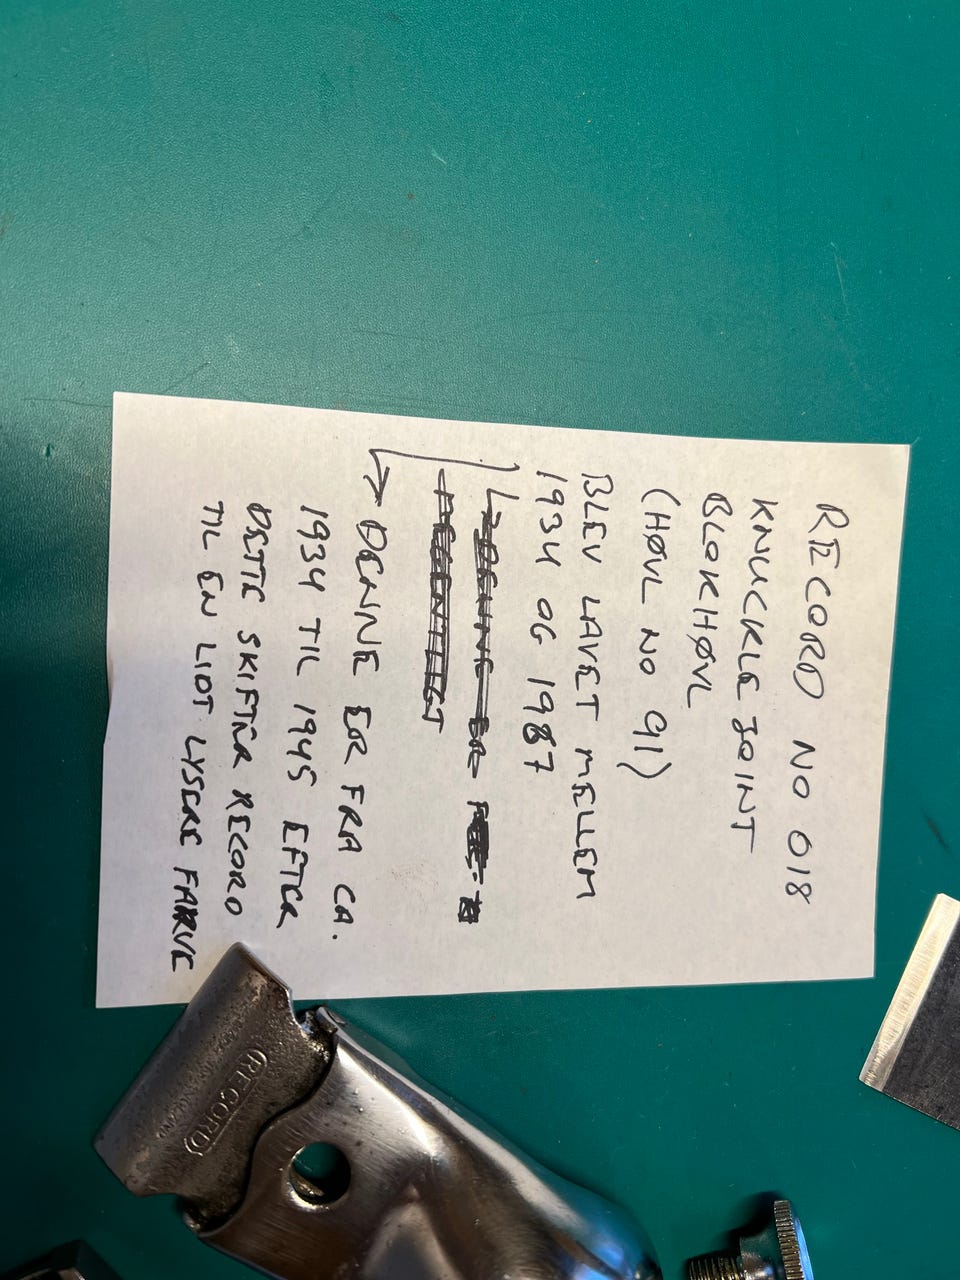 RECORD NO 018
KNUCKLE JOINT
BLOKHØVL
(HØVL NO 91)
BLEV LAVET MELLEM
1934 OG 1987
DENNE ER
DENNE ER FRA CA.
1934 TIL 1945 EFTER
DETTE SKIFTER RECORD
TIL EN LIDT LYSERE FARVE
RECORD
ENGLAND